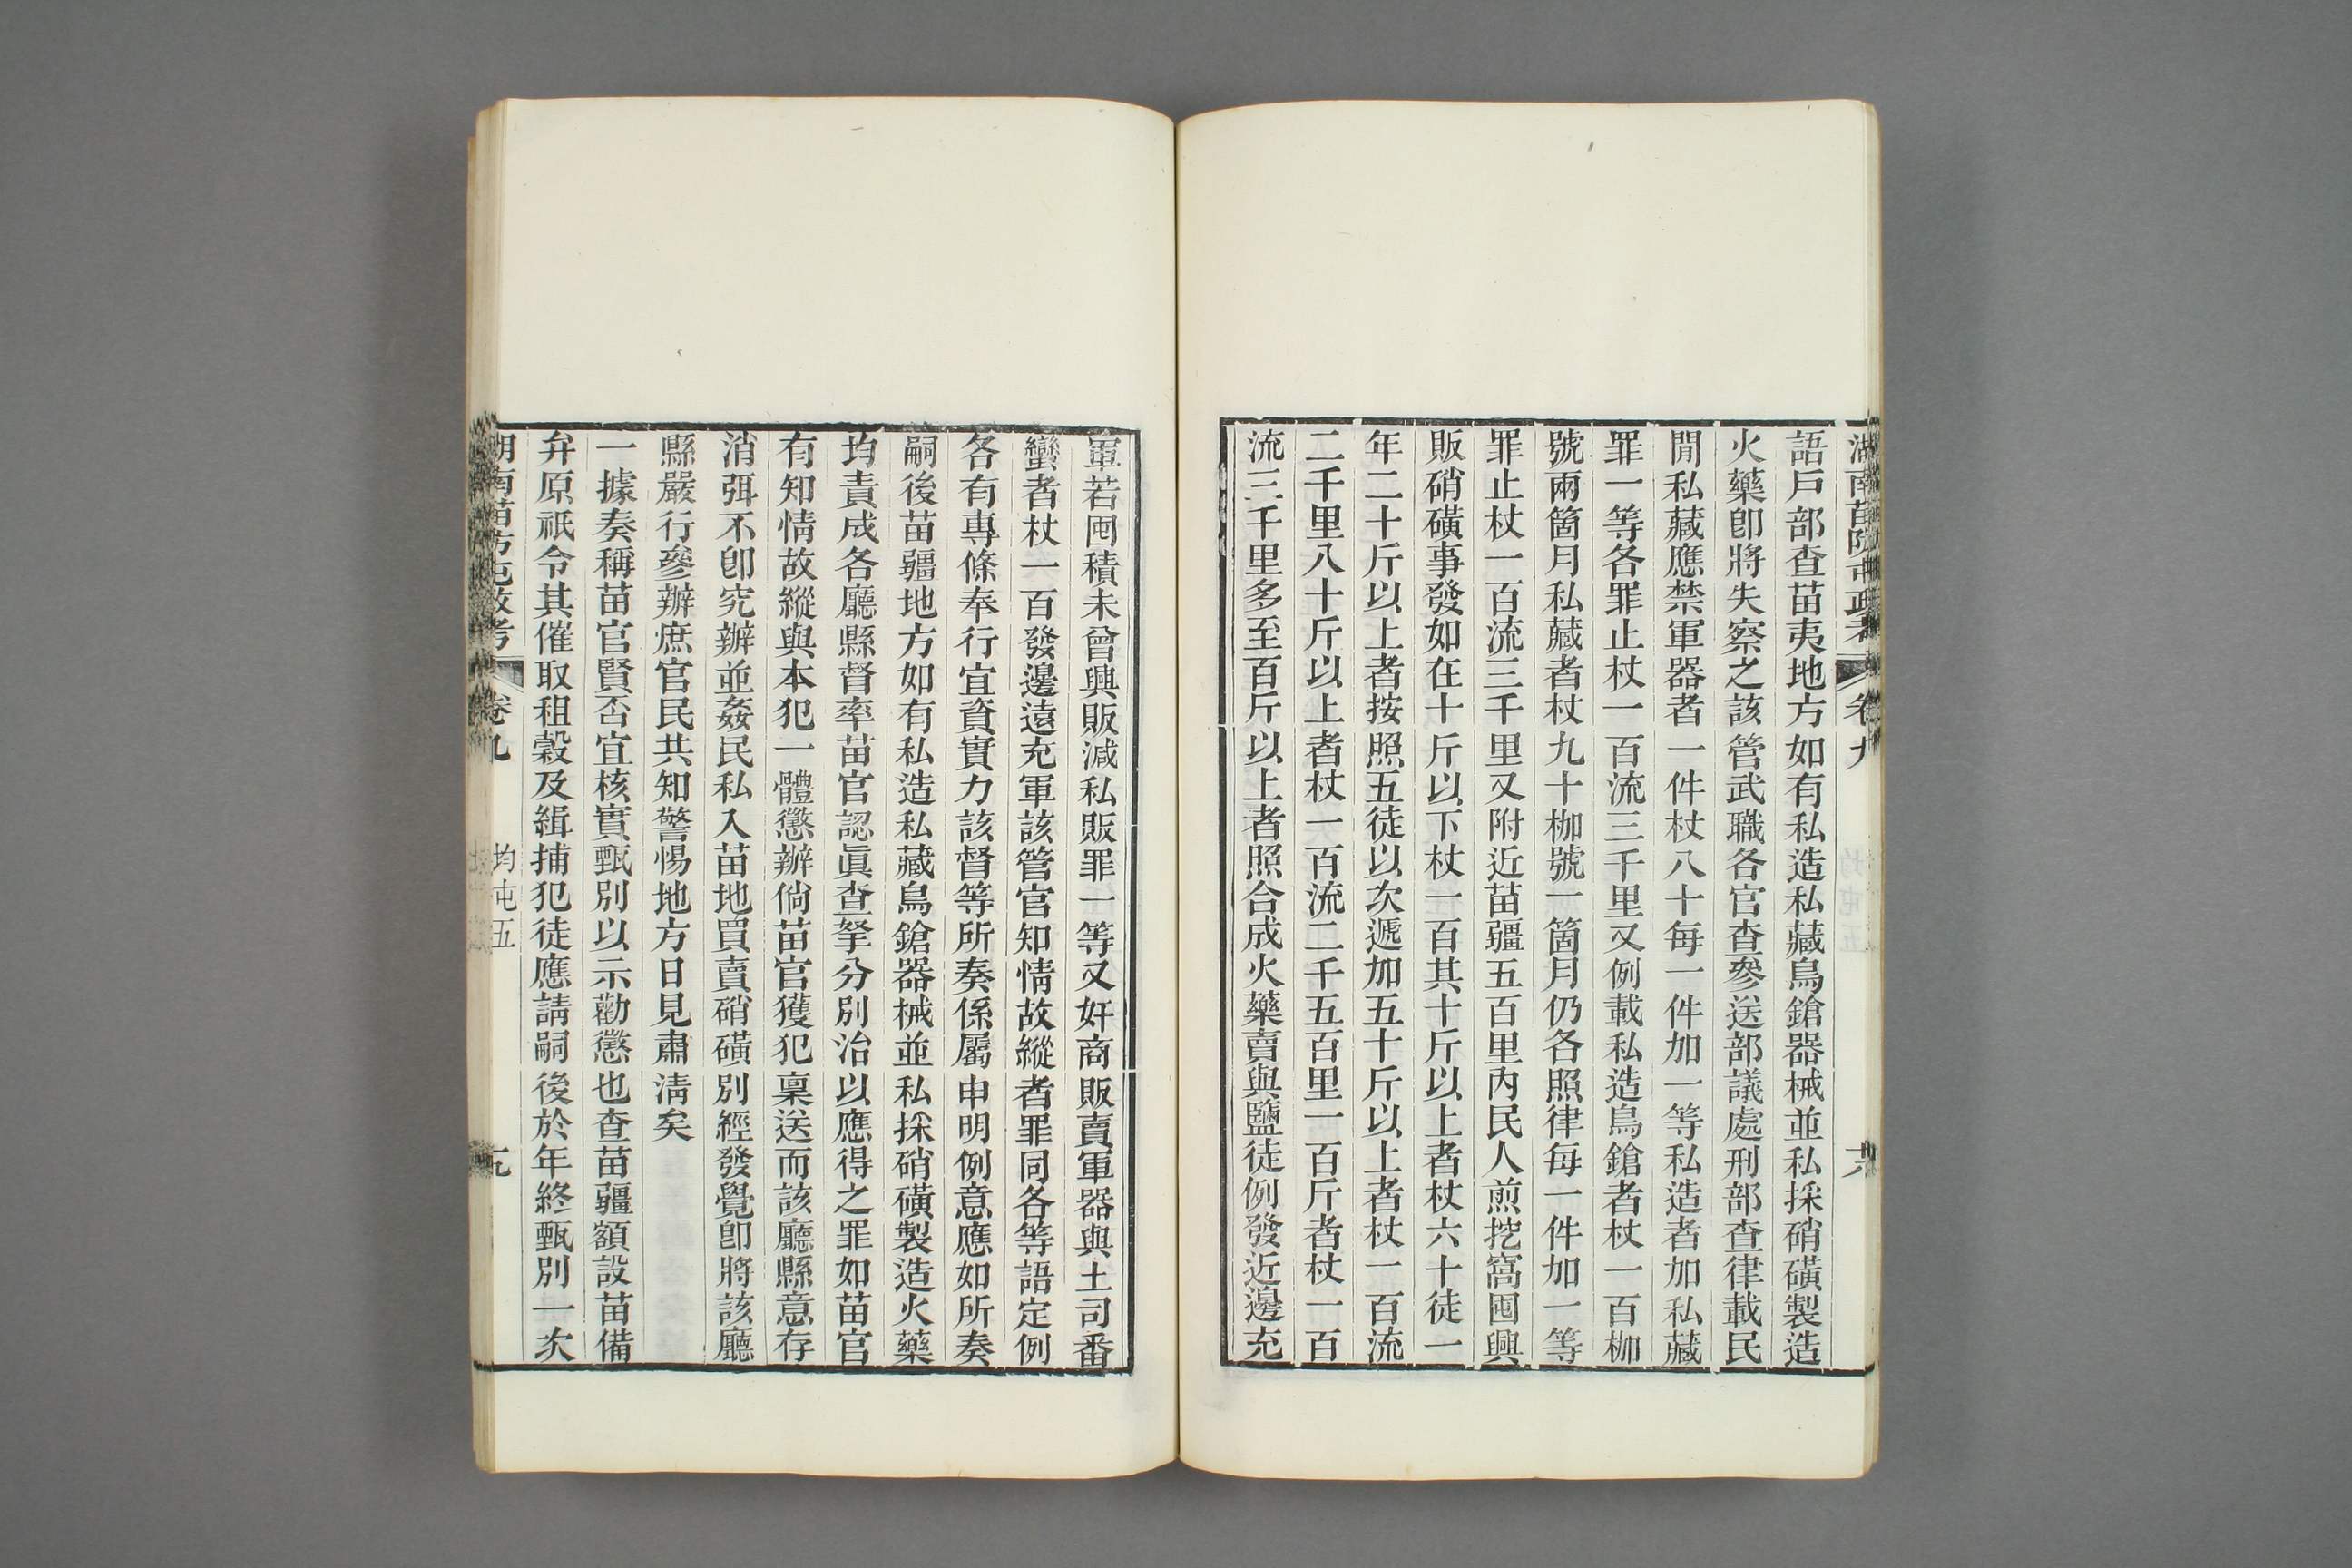 湖南苗防屯政考 卷九 六
語戶部查苗夷地方如有私造私藏鳥鎗器械並私採硝磺製造
火藥卽將失察之該管武職各官查參送部議處刑部查律載民
閒私藏應禁軍器者一件杖八十每一件加一等私造者加私藏
罪一等各罪止杖一百流三千里又例載私造鳥鎗者杖一百枷
號兩箇月私藏者杖九十枷號一箇月仍各照律每一件加一等
罪止杖一百流三千里又附近苗疆五百里內民人煎挖窩囤興
販硝磺事發如在十斤以下杖一百其十斤以上者杖六十徒一
年二十斤以上者按照五徒以次遞加五十斤以上者杖一百流
二千里八十斤以上者杖一百流二千五百里一百斤者杖一百
流三千里多至百斤以上者照合成火藥賣與鹽徒例發近邊充
軍若囤積未曾興販減私販罪一等又奸商販賣軍器與土司番
蠻者杖一百發邊遠充軍該管官知情故縱者罪同各等語定例
各有專條奉行宜資實力該督等所奏係屬申明例意應如所奏
嗣後苗疆地方如有私造私藏鳥鎗器械並私採硝磺製造火藥
均責成各廳縣督率苗官認眞查拏分別治以應得之罪如苗官
有知情故縱與本犯一體懲辦倘苗官獲犯稟送而該廳縣意存
消弭不卽究辦並姦民私入苗地買賣硝磺別經發覺卽將該廳
縣嚴行參辦庶官民共知警惕地方日見肅淸矣
一據奏稱苗官賢否宜核實甄別以示勸懲也查苗疆額設苗備
弁原祇令其催取租穀及緝捕犯徒應請嗣後於年終甄別一次
湖南苗防屯政考 卷九 均屯五